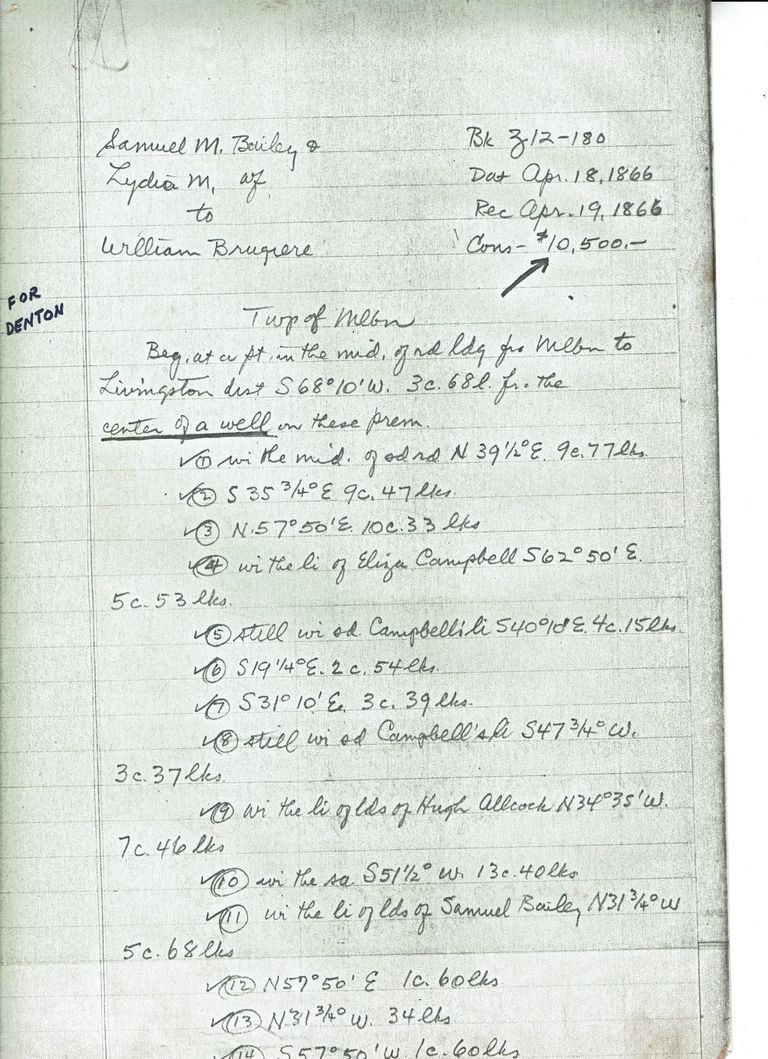 Samuel M. Bailey & Bk Z-12-180
Lydia M, wf Dat Apr. 18, 1866
to Rec Apr. 19, 1866
William Brugiere Cons - $10,500.-
FOR
DENTON
Twp of Mlbn
Beg. at a pt. in the mid. of rd ldg fro Mlbn to
Livingston dist S 68° 10' W. 3c. 68l. fr. the
center of a well on these prem.
① wi the mid. of sd rd N 39 1/2° E. 9c. 77 lks.
② S 35 3/4° E. 9c. 47 lks.
③ N. 57° 50' E. 10c. 33 lks
④ wi the li of Eliza Campbell S 62° 50' E.
5c. 53 lks.
⑤ still wi sd Campbell's li S 40° 10' E. 4c. 15 lks.
⑥ S 19 1/4° E. 2c. 54 lks.
⑦ S 31° 10' E. 3c. 39 lks.
⑧ still wi sd Campbell's li S 47 3/4° W.
3c. 37 lks.
⑨ wi the li of lds of Hugh Allcock N 34° 35' W.
7c. 46 lks
⑩ wi the sa S 51 1/2° W. 13c. 40 lks
⑪ wi the li of lds of Samuel Bailey N 31 3/4° W
5c. 68 lks
⑫ N 57° 50' E 1c. 60 lks
⑬ N 31 3/4° W. 34 lks
⑭ S 57° 50' W. 1c. 60 lks